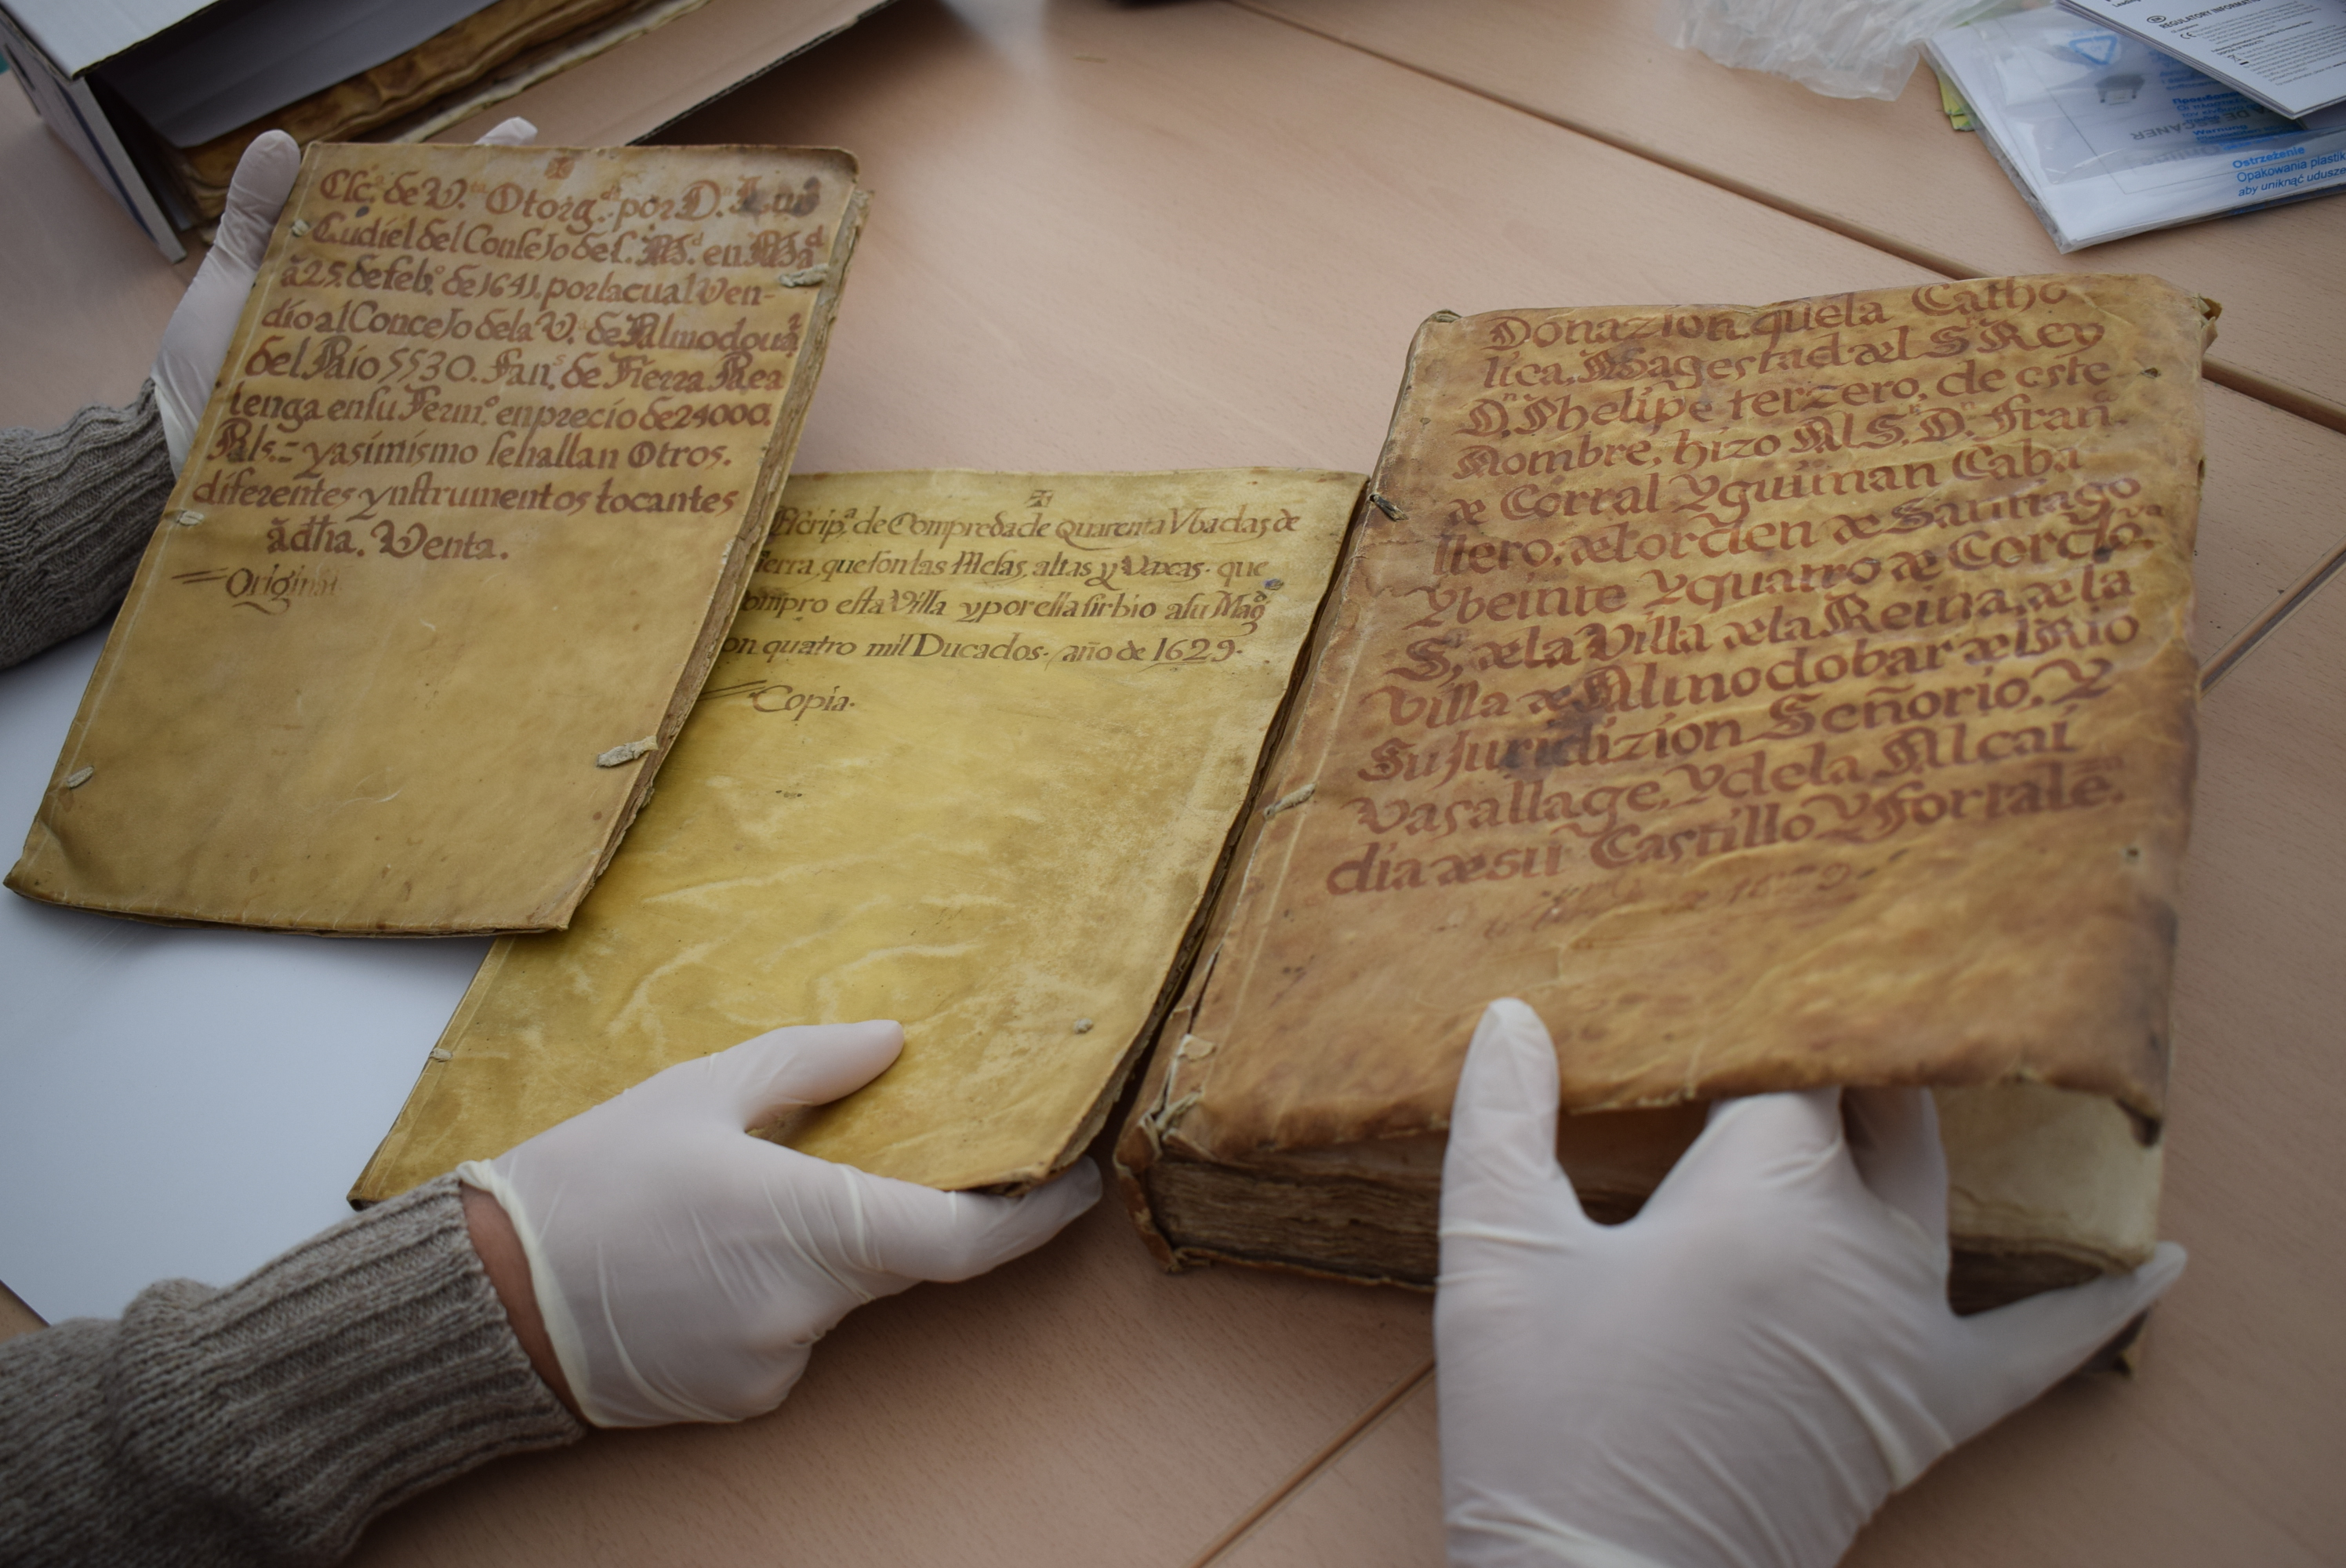 Esc.ª de V.ta Otorg.da por D. Luis
Gudiel del Consejo de S. M.d en Mad.d
à 25 de feb.º de 1641. por la cual Ven-
dio al Concejo dela V.ª de Almodouàr
del Paio 5530. Fan.s de Tierra Rea
lenga en su Term.º en precio de 24000.
Rals. = y asimismo se hallan Otros.
diferentes ynstrumentos tocantes
à dha. Venta.
Original
Escrip.ª, de Compreda de quarenta Vbadas de
ierra, que son las Mesas, altas y Vaxas. que
ompro esta Villa y por ella sirbio a su Mag.d
on quatro mil Ducados. año de 1629.
Copia.
Donazion. quela Catho
lica, Magestad del S. Rey
D.n Phelipe terzero, de este
Nombre, hizo Al S.r D.n Fran.co
de Corral Y guzman Caba
llero, del orden de Santiago
Y beinte Y quatro de Cordo.va
S.r, dela Villa dela Reina, de la
Villa de Almodobar del Rio
Su Juridizion Señorio, Y
Vasallage, y dela Alcai
dia de su Castillo Y fortale.
REGULATORY INFORMATION
CE
Warning
Ostrzeżenie
Opakowania plastik
aby uniknąć udusze